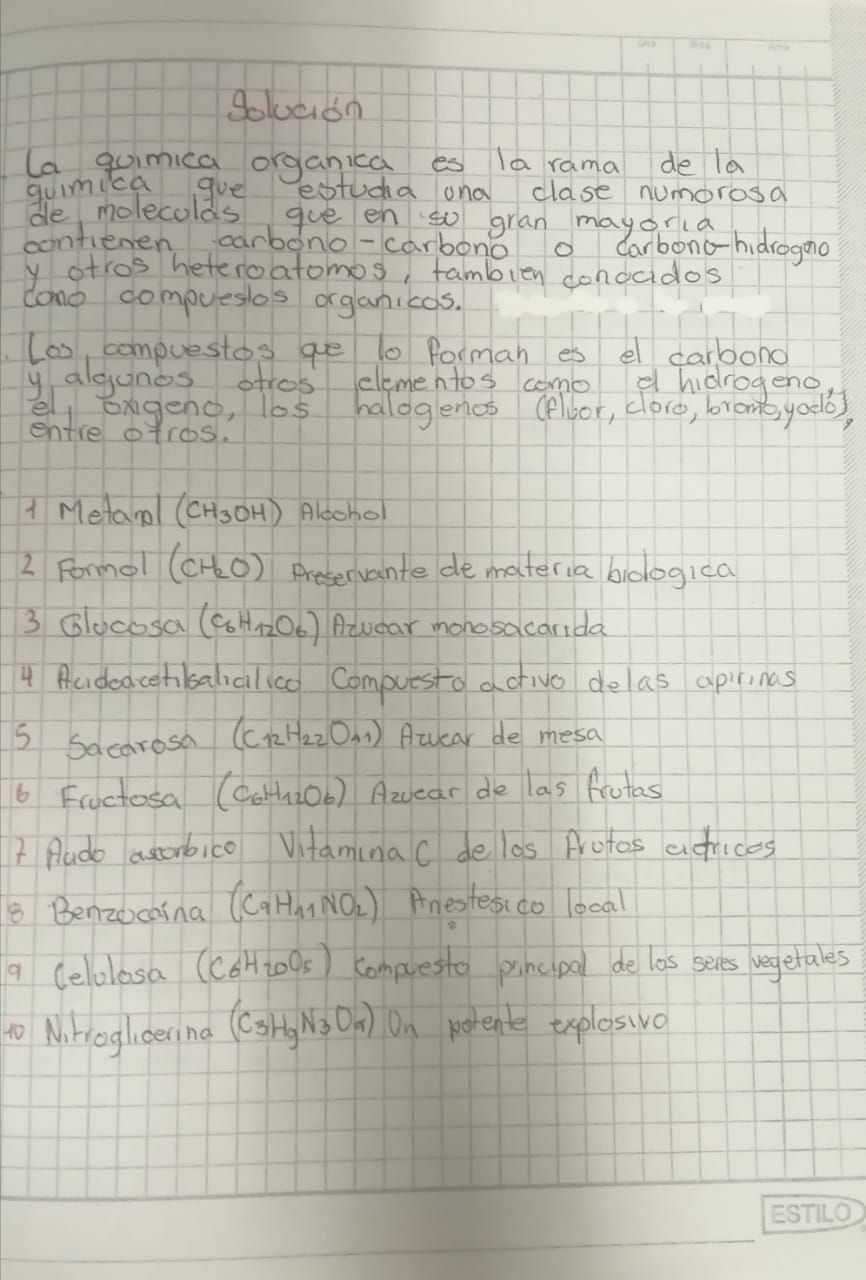 Dia Mes Año
Solución
La quimica organica es la rama de la
quimica que estudia una clase numorosa
de moleculas que en su gran mayoria
contienen carbono-carbono o carbono-hidrogno
y otros heteroatomos, tambien conocidos
como compuestos organicos.
Los compuestos que lo forman es el carbono
y algunos otros elementos como el hidrogeno,
el oxigeno, los halogenos (fluor, cloro, bromo, yodo),
entre otros.
1 Metanol (CH3OH) Alcohol
2 Formol (CH2O) Preservante de materia biologica
3 Glucosa (C6H12O6) Azucar monosacarida
4 Acidoacetilsalicilico Compuesto activo delas apirinas
5 Sacarosa (C12H22O11) Azucar de mesa
6 Fructosa (C6H12O6) Azucar de las frutas
7 Acido ascorbico Vitamina C de los frutos citricos
8 Benzocaina (C9H11NO2) Anestesico local
9 Celulosa (C6H10O5) Compuesto principal de los seres vegetales
10 Nitroglicerina (C3H9N3O9) Un potente explosivo
ESTILO